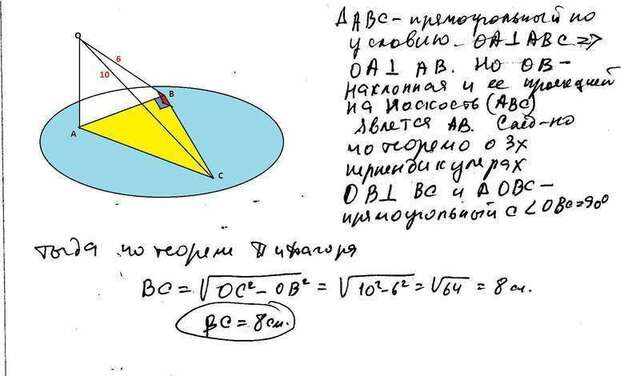 O
6
10
B
A
C
△ABC – прямоугольный по
условию – OA⊥ABC ⇒
OA⊥ AB. Но OB –
наклонная и ее проекцией
на плоскость (ABC)
явлется AB. След-но
по теореме о 3х
перпендикулярах
OB⊥ BC и △OBC –
прямоугольный с ∠OBC=90°
тогда по теореме Пифагора
BC = √OC² – OB² = √10² – 6² = √64 = 8 см.
BC = 8 см.